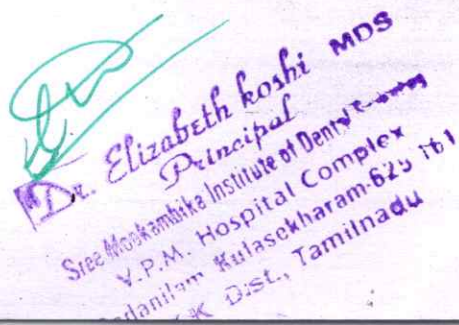 Dr. Elizabeth koshi MDS
Principal
Sree Mookambika Institute of Dental
V.P.M. Hospital Complex
Kulasekharam-629 161
K.K Dist., Tamilnadu